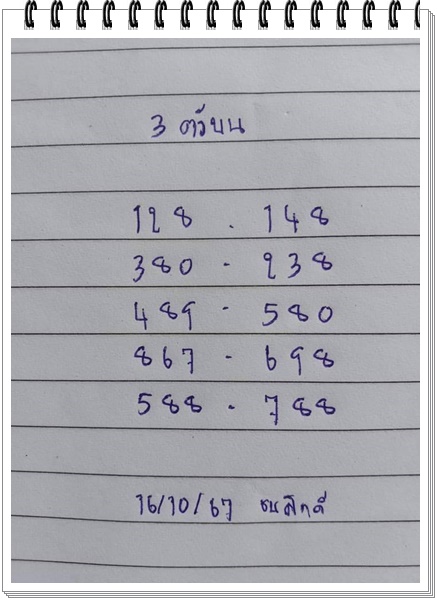 3 ตัวบน
128 . 148
380 - 238
489 - 580
867 - 698
588 - 788
16/10/67